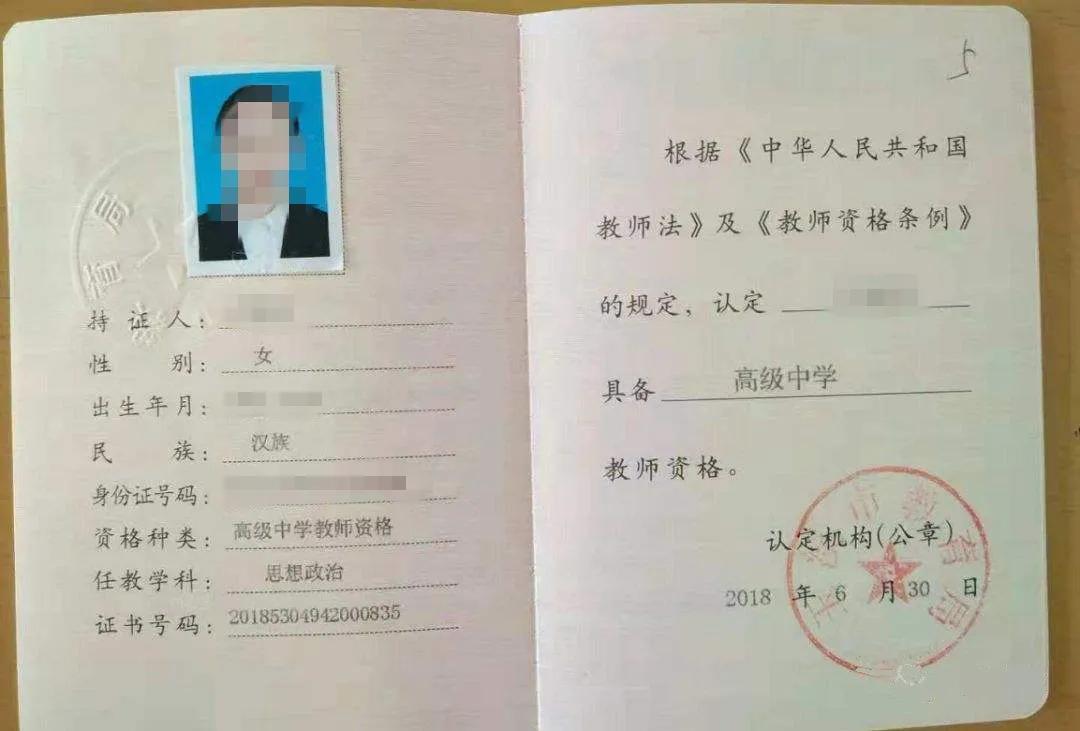 持证人：
性别：女
出生年月：
民族：汉族
身份证号码：
资格种类：高级中学教师资格
任教学科：思想政治
证书号码：20185304942000835
5
根据《中华人民共和国
教师法》及《教师资格条例》
的规定，认定
具备 高级中学
教师资格。
认定机构(公章)
2018 年 6 月 30 日
市教育局
育局